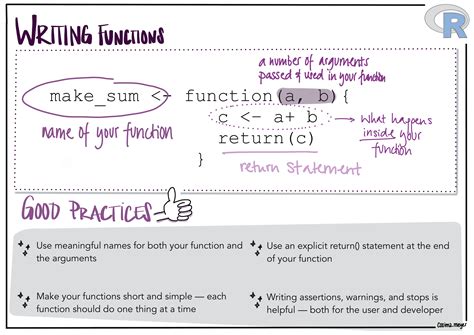 WRITING FUNCTIONS
R
a number of arguments
passed & used in your function
make_sum <- function(a, b){
name of your function
c <- a+ b
what happens
inside your
function
return(c)
}
return statement
GOOD PRACTICES
Use meaningful names for both your function and
the arguments
Make your functions short and simple — each
function should do one thing at a time
Use an explicit return() statement at the end
of your function
Writing assertions, warnings, and stops is
helpful — both for the user and developer